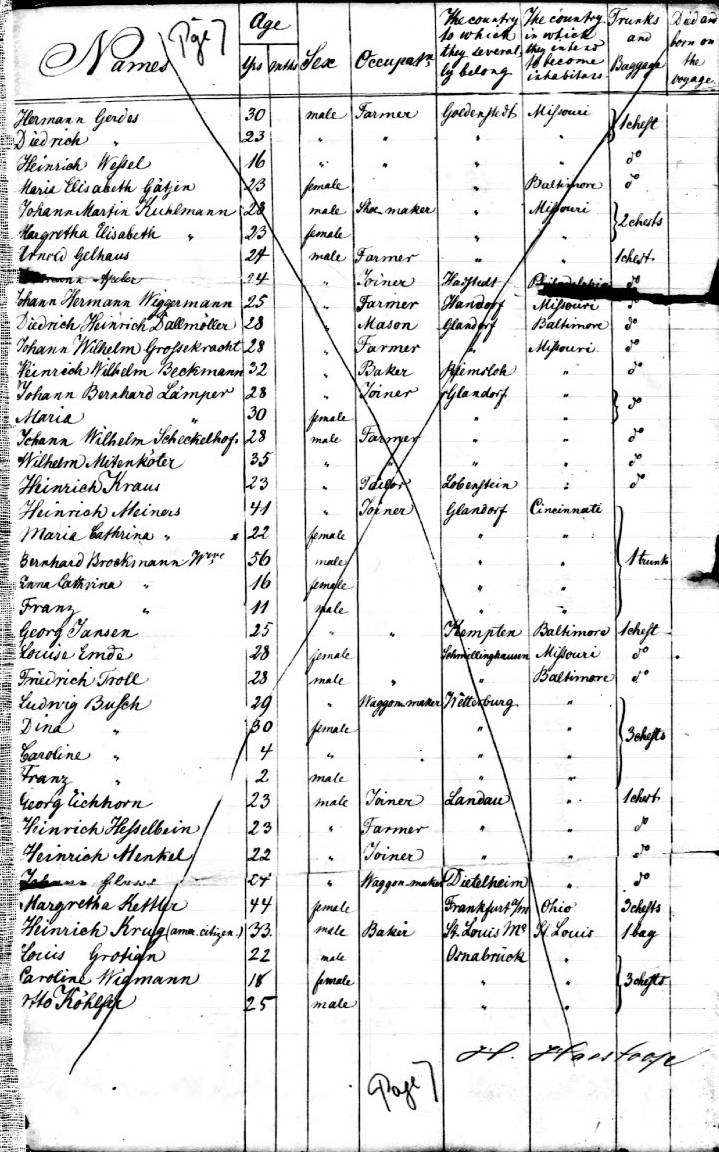 Page 7
Names Age Sex Occupatn The country to which they several-ly belong The country in which they intend to become inhabitans Trunks and Baggage Died and born on the voyage
yrs mths
Hermann Gerdes 30 male Farmer Goldenstedt Missouri } 1 chest
Diedrich " 23 " " " "
Heinrich Wessel 16 " " " " do
Maria Elisabeth Gätjen 23 female " Baltimore do
Johann Martin Kuhlmann 28 male Shoe maker " Missouri } 2 chests
Margretha Elisabeth " 23 female " "
Arnold Gelhaus 24 male Farmer " " 1 chest
24 " Joiner Philadelphia do
Johann Hermann Wiggermann 25 " Farmer Handorf Missouri do
Diedrich Heinrich Dallmöller 28 " Mason Glandorf Baltimore do
Johann Wilhelm Grossekracht 28 " Farmer " Missouri do
Heinrich Wilhelm Beckmann 32 " Baker " do
Johann Bernhard Lämper 28 " Joiner Glandorf " } do
Maria " 30 female " "
Johann Wilhelm Scheckelhof 28 male Farmer " " do
Wilhelm Mitenköter 35 " " " " do
Heinrich Kraus 23 " Tailor Lobenstein " do
Heinrich Meiners 41 " Joiner Glandorf Cincinnati } 1 trunk
Maria Cathrina " 22 female " "
Bernhard Brocksmann 56 male " "
Anna Cathrina " 16 female " "
Franz " 11 male " "
Georg Jansen 25 " " Kempten Baltimore 1 chest
Louise Emde 28 female Schmillinghausen Missouri do
Friedrich Troll 28 male " " Baltimore do
Ludwig Busch 29 " Waggon maker Wetterburg " } 3 chests
Dina " 30 female " "
Caroline " 4 " " "
Franz " 2 male " "
Georg Eichhorn 23 male Joiner Landau " 1 chest
Heinrich Hesselbein 23 " Farmer " " do
Heinrich Menkel 22 " Joiner " " do
Johann 24 " Waggon maker Dietelheim " do
Margretha Kettler 44 female Frankfurt a/m Ohio 3 chests
Heinrich Krug (amer. citizen.) 33 male Baker St. Louis Mo St Louis 1 bag
Louis Grotian 22 male Osnabrück " } 3 chests
Caroline Wigmann 18 female " "
Otto Köhler 25 male " "
H.
Page 7